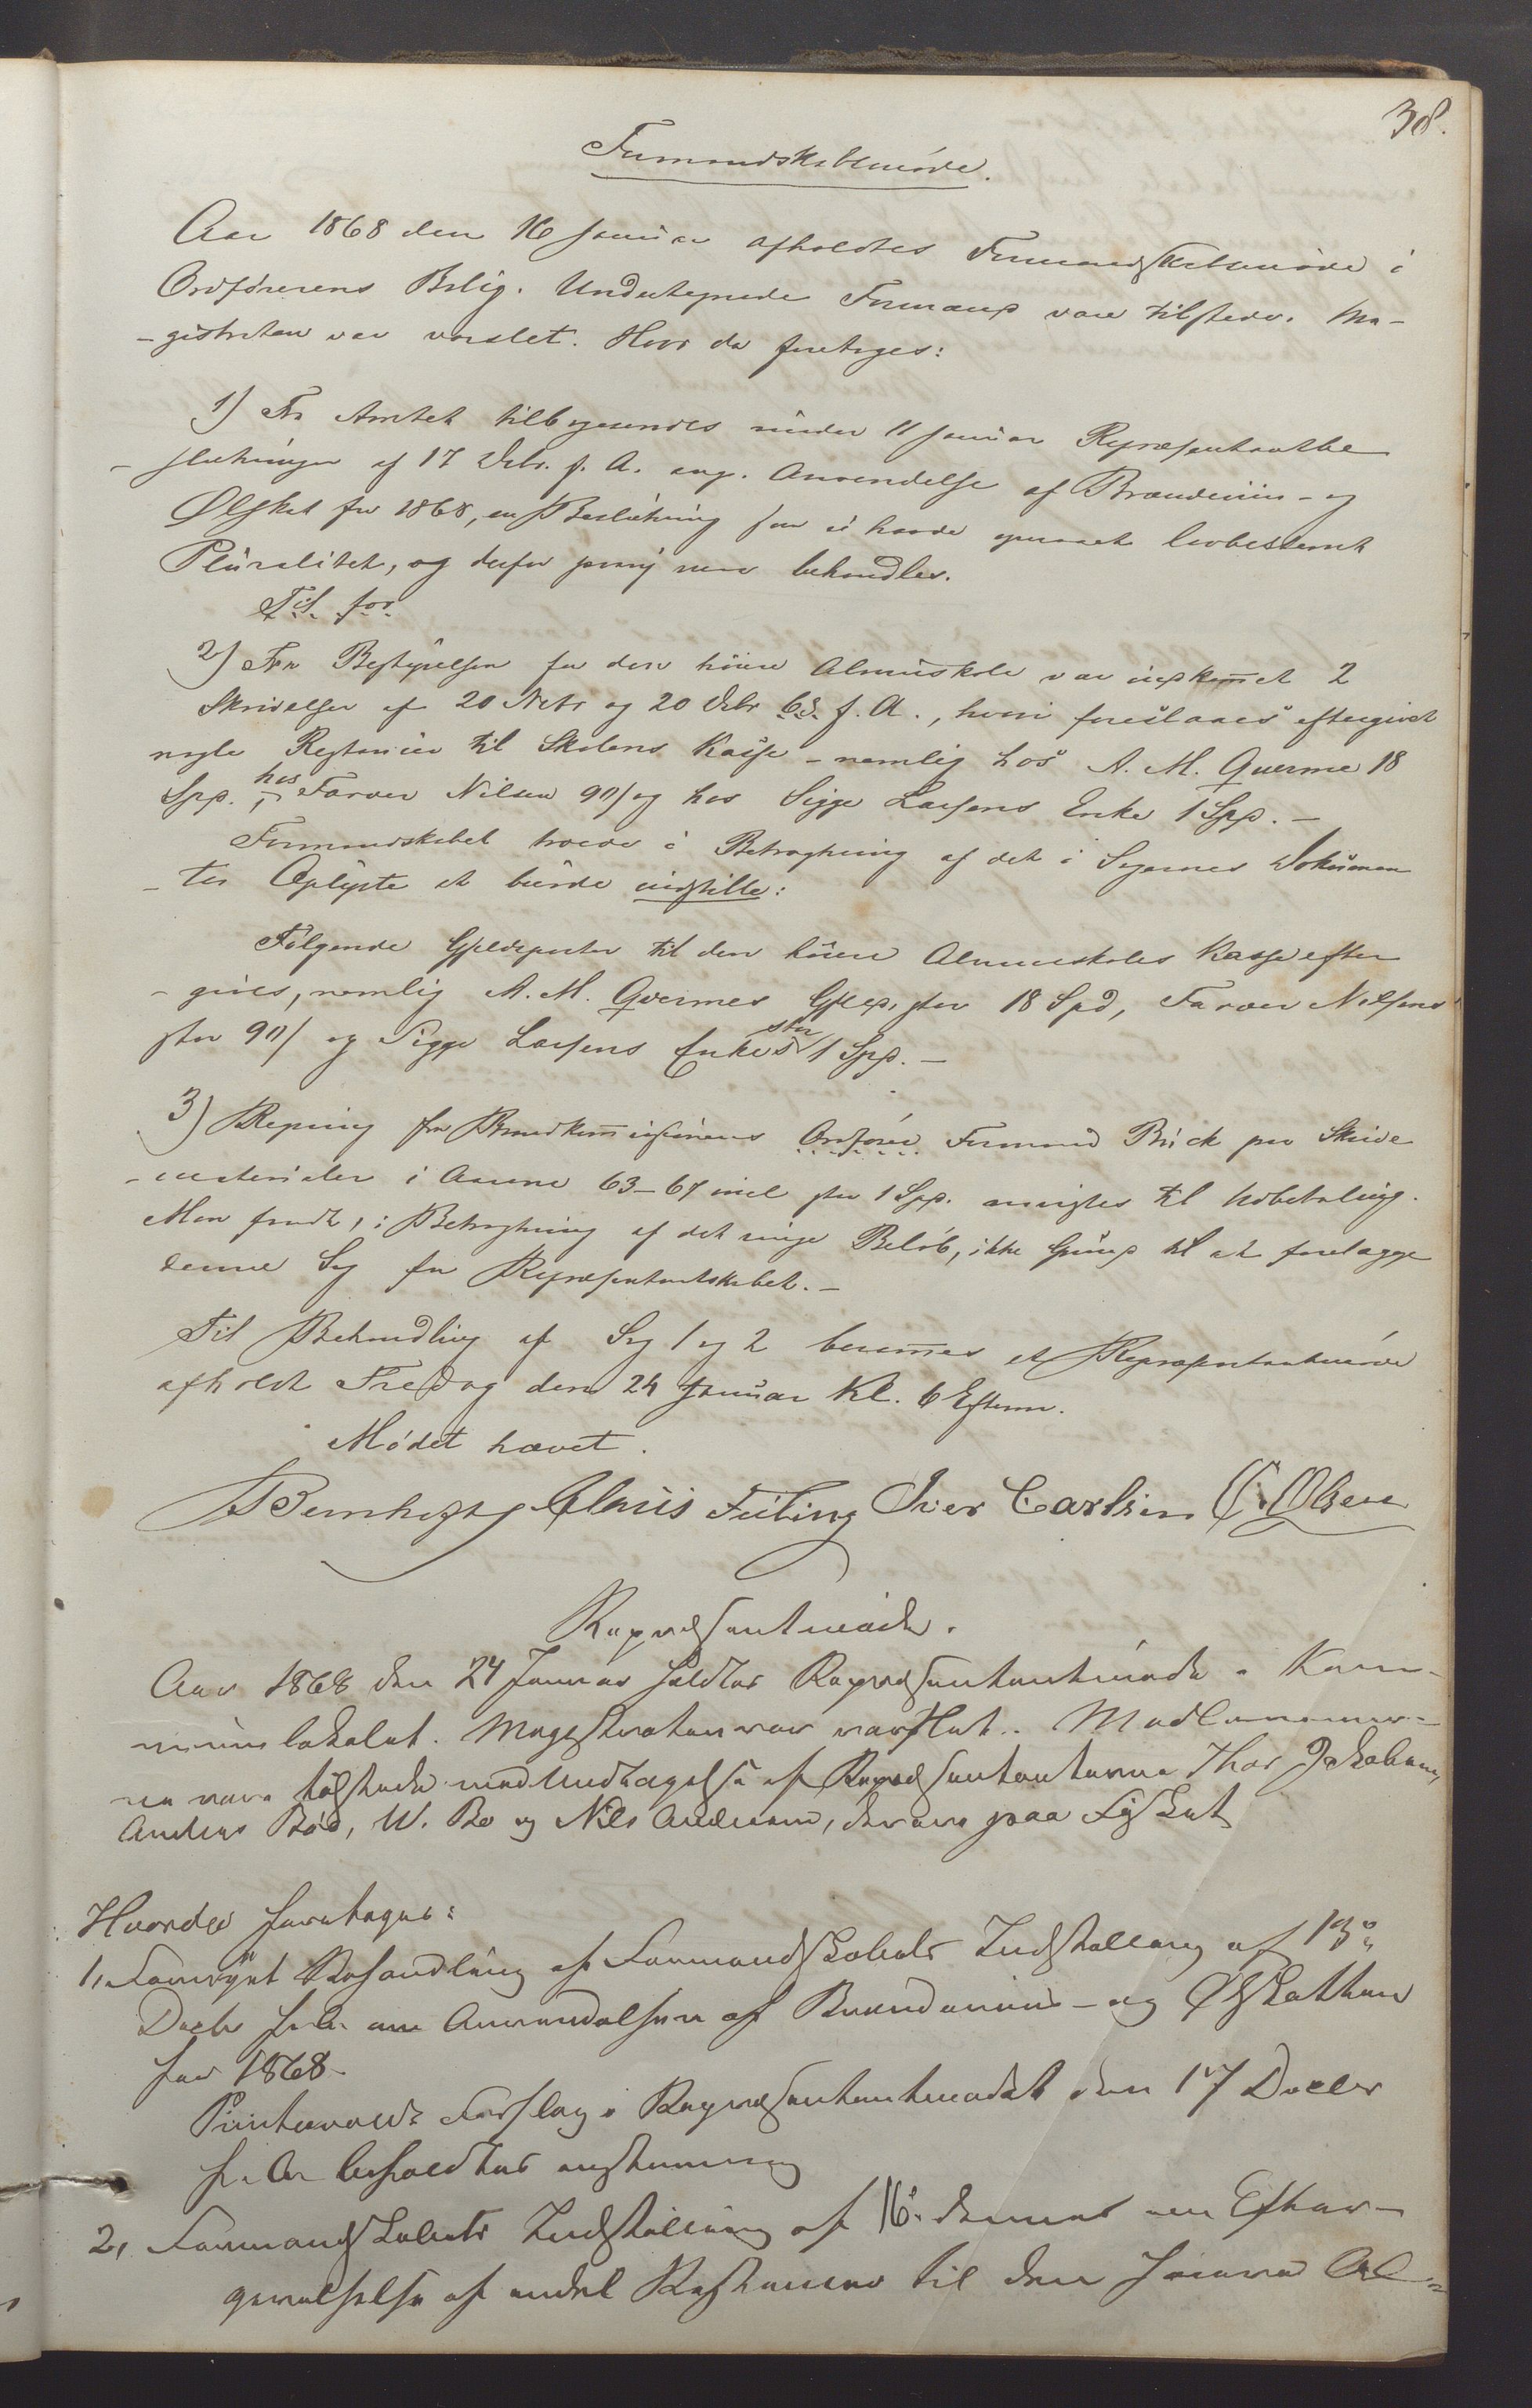 38.
Formandskabsmøde.
Aar 1868 den 16 Januar afholdtes Formandskabsmøde i
Ordførerens Bolig. Undertegnede Formænd vare tilstede. Ma-
-gistraten var varslet. Hvor da foretoges:
1) Fra Amtet tilbagesendes under 11 Januar Repræsentantbe
-slutninger af 17 Debr. f. A. ang. Anvendelse af Brændeviin- og
Ølskat for 1868, en Beslutning som ei havde opnaaet lovbestemt
Pluralitet, og derfor paany maa behandles.
Til for.
2) Fra Bestyrelsen for den høiere Almueskole var indkommet 2
Skrivelser af 20 Novbr og 20 Debr f. A., hvori foreslaaes eftergivet
nogle Restancer til Skolens Kasse - nemlig hos A. M. Qverme 18
Spd., hos Farver Nilsen 90/ og hos Sigge Larsens Enke 1 Spd. -
Formandskabet troede i Betragtning af det i Sagernes Dokumen
-ter Oplyste at burde indstille:
Følgende Gjeldsposter til den høiere Almueskoles Kasse efter
-gives, nemlig A. M. Qvermes Gjeld, stor 18 Spd, Farver Nilsens
stor 90/ og Sigge Larsens Enkes stor 1 Spd. -
3) Regning fra Brandkommissionens Ordfører Formand Brück paa Skrive
-materialer i Aarene 63-67 incl stor 1 Spd. anvistes til Udbetaling.
Man fandt, i Betragtning af det ringe Beløb, ikke Grund til at forelægge
denne Sag for Repræsentantskabet. -
Til Behandling af Sag 1 og 2 berammes et Repræsentantmøde
afholdt Fredag den 24 Januar Kl. 6 Efterm.
Mødet hævet.
Claus Feiling Iver Carlsen C. Olsen
Repræsentmøde.
Aar 1868 den 24 Januar holdtes Repræsentantmøde i Kom-
munelokalet. Magistraten var varslet. Medlemmer-
ne vare tilstede med Undtagelse af Repræsentanterne Thor Jakobsen,
Anders Bøe, W. Bo og Nils Andersen, der vare paa Fiskeri
Hvorda foretoges:
1, Fornyet Behandling af Formandskabets Indstilling af 13de
Decbr f. A. om Anvendelsen af Brændeviins- og Ølskatten
for 1868.
Forslag i Repræsentantmødet den 17 Decbr
f. A. beholdtes enstemmig
2, Formandskabets Indstilling af 16. dennes om Efter-
givelse af endel Restancer til den høiere Al-